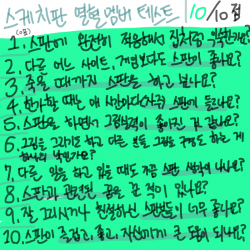 스케치판 열혈멤버 테스트 10/10점
1. 스판에 완전히 적응해서 집처럼 익숙한가요?
2. 다른 어느 사이트, 게임보다도 스판이 좋나요?
3. 죽을 때까지 스판을 하고 싶나요?
4. 한가할 때는 매 시간마다 자주 스판에 들르나요?
5. 스판을 하면서 그림실력이 좋아진 것 같나요?
6. 그림을 그리기도 하고 다른 분들 그림을 구경도 하는 게
7. 다른 일을 하고 있을 때도 가끔 스판 생각이 나나요?
8. 스판과 관련된 꿈을 꾼 적이 있나요?
9. 잘 그리시거나 친절하신 스판분들이 너무 좋나요?
10. 스판이 즐겁고 좋고, 자신에게 큰 도움이 되나요?